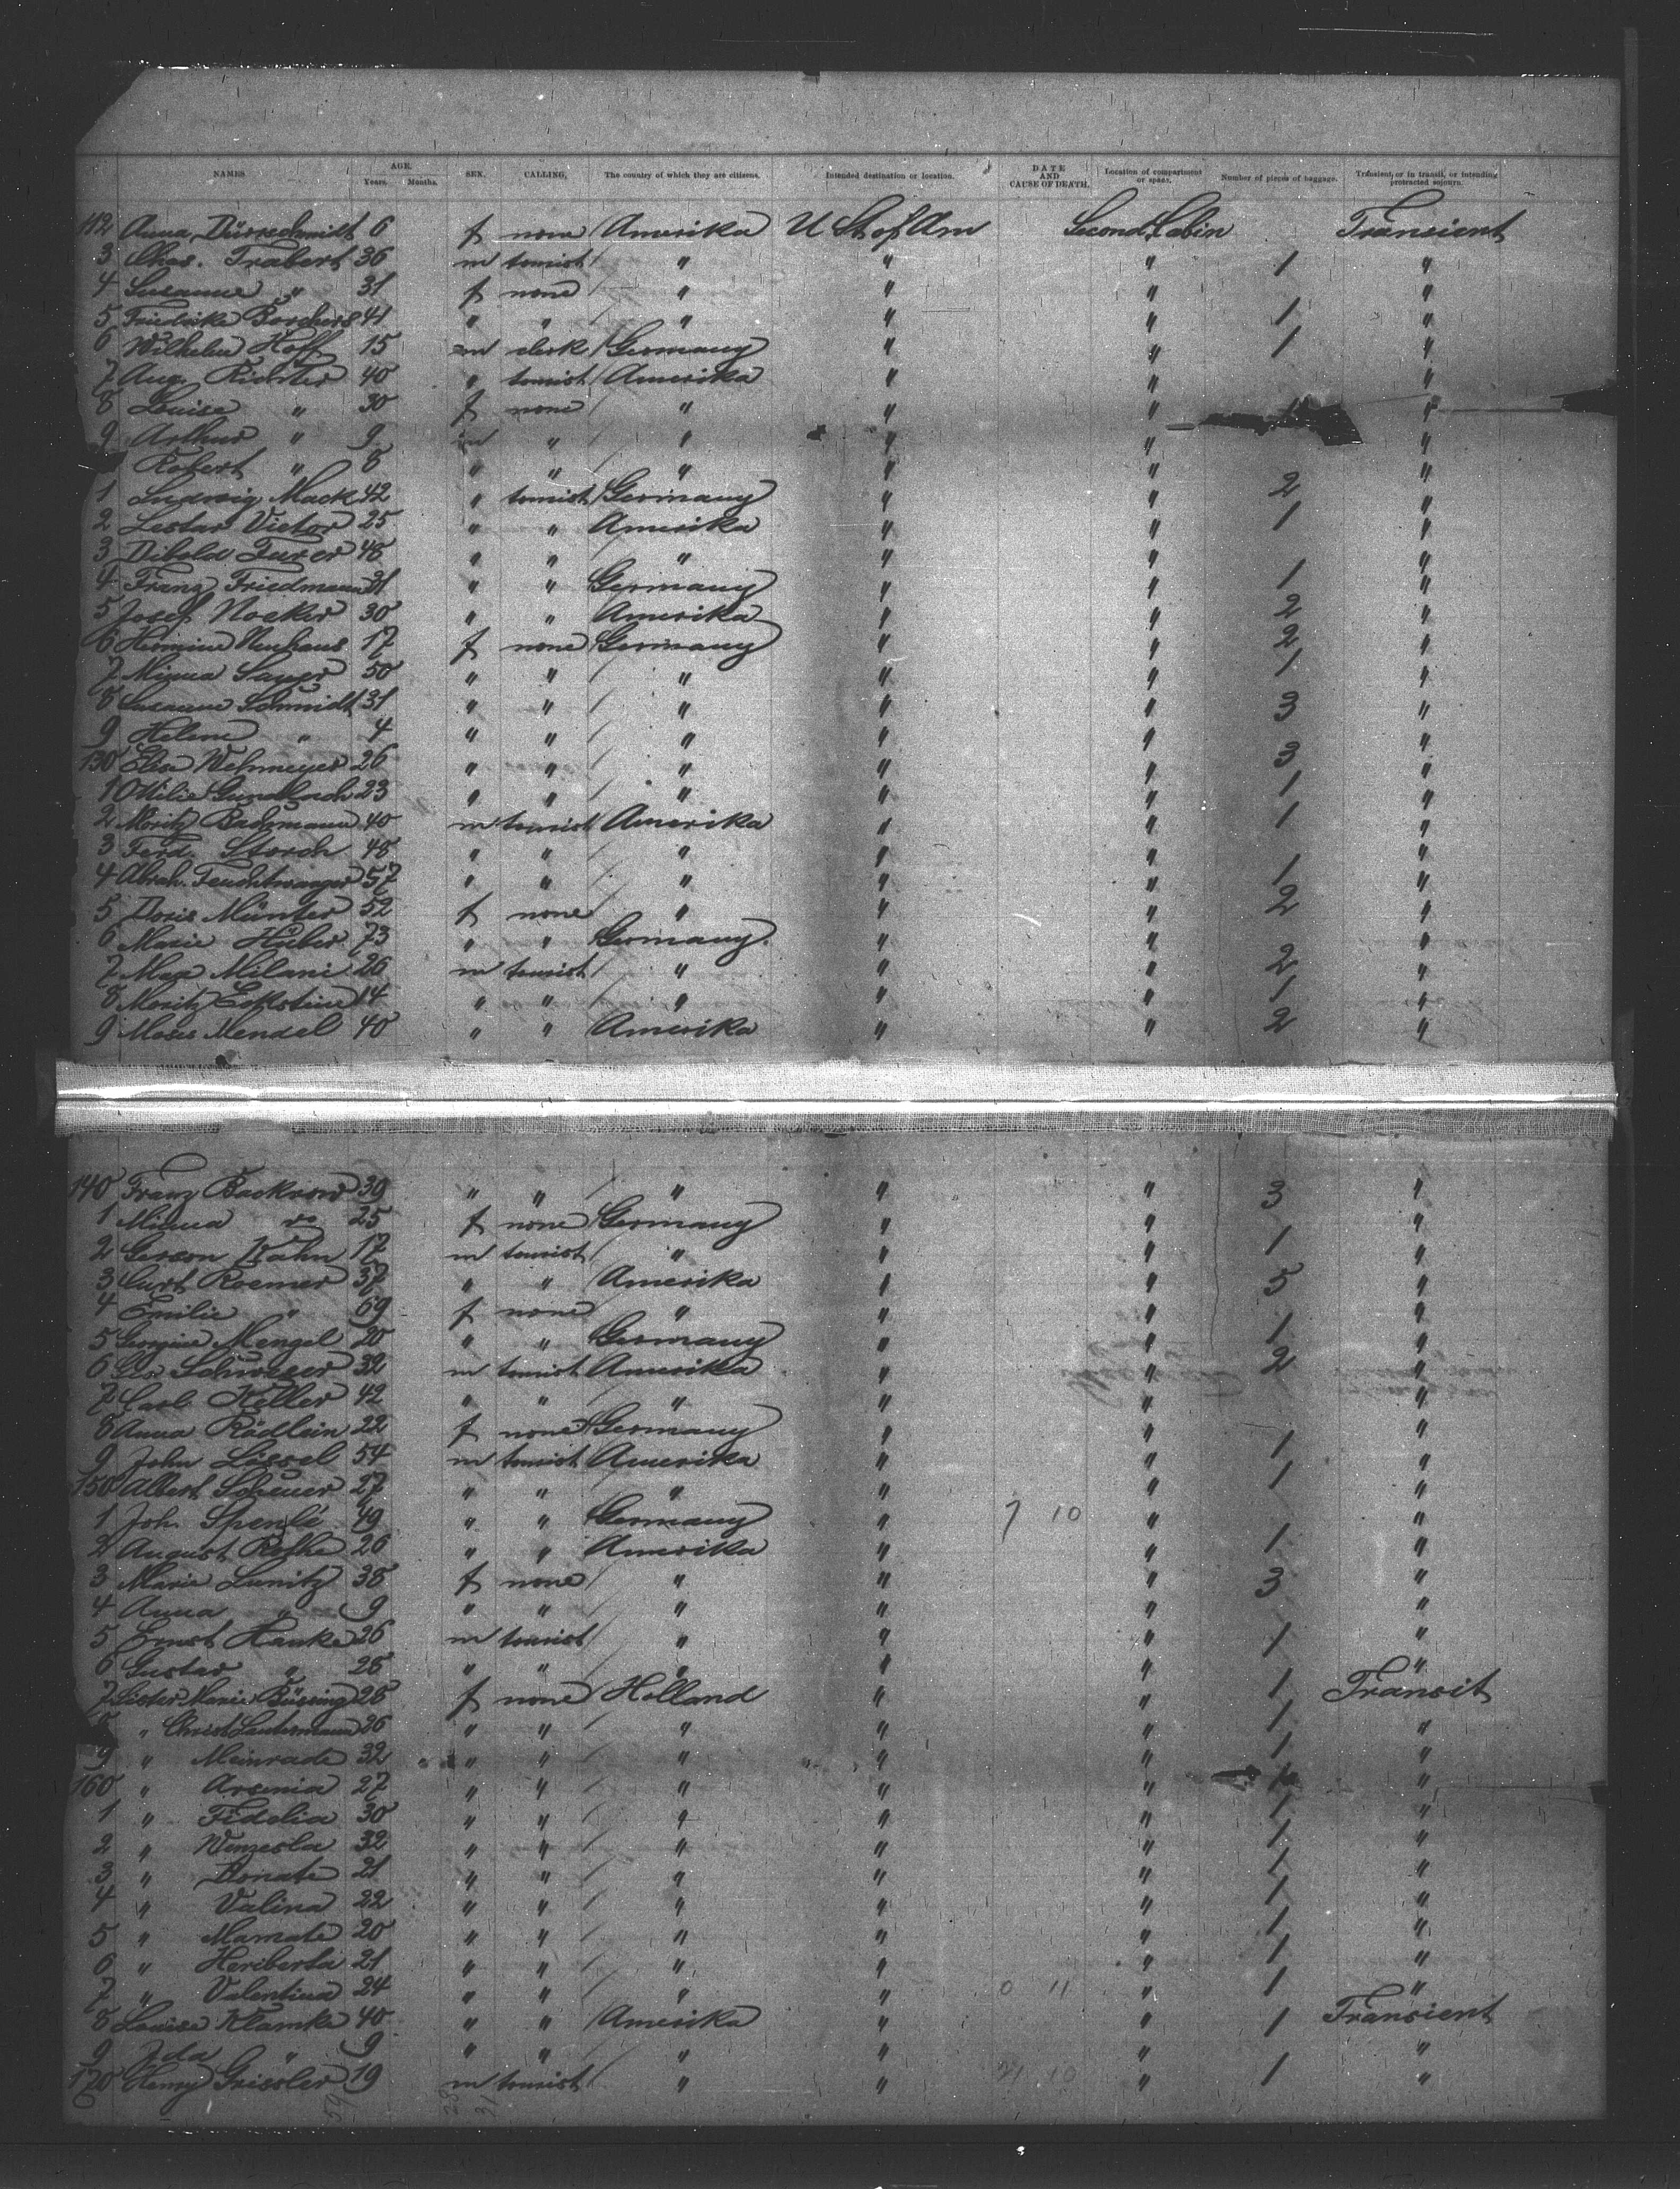 NAMES AGE. Years. Months. SEX. CALLING, The country of which they are citizens. Intended destination or location. DATE AND CAUSE OF DEATH. Location of compartment or space. Number of pieces of baggage. Transient, or in transit, or intending protracted sojourn.
112 Anna Dürrschmidt 6 f none Amerika U St of Am Second Cabin Transient
3 Chas. Trabert 36 m tourist " " " 1 "
4 Susanne " 31 f none " " " "
5 Friedrike Borchers 41 " " " " " 1 "
6 Wilhelm Hoff 15 m clerk Germany " " 1 "
7 Aug. Richter 40 " tourist Amerika " " "
8 Louise " 30 f none " " " 1 "
9 Arthur " 9 m " " " " "
Robert " 8 " " " " " "
1 Ludwig Mack 42 " tourist Germany " " 2 "
2 Lestar Victor 25 " " Amerika " " 1 "
3 Dibold Furer 48 " " " " " "
4 Franz Friedmann 31 " " Germany " " 1 "
5 Josef Nocker 30 " " Amerika " " 2 "
6 Hermine Neuhaus 17 f none Germany " " 2 "
7 Minna Sauer 50 " " " " " 1 "
8 Susanne Schmidt 31 " " " " " 3 "
9 Helene " 4 " " " " " "
130 Elise Wehmeyer 26 " " " " " 3 "
1 Ottilie Gundlach 23 " " " " " 1 "
2 Moritz Bachmann 40 m tourist Amerika " " 1 "
3 Ferd. Storch 48 " " " " " "
4 Abrah. Feuchtwanger 57 " " " " " 1 "
5 Doris Münter 52 f none " " " 2 "
6 Marie Huber 73 " " Germany " " "
7 Max Milani 26 m tourist " " " 2 "
8 Moritz Eckstein 14 " " " " " 1 "
9 Moses Mendel 40 " " Amerika " " 2 "
140 Franz Backrow 39 " " " " " 3 "
1 Minna do 25 f none Germany " " "
2 Gerson Kahn 17 m tourist " " " 1 "
3 Curt Roemer 37 " " Amerika " " 5 "
4 Emilie " 69 f none " " " "
5 Georgine Mengel 20 " " Germany " " 1 "
6 Geo Schweger 32 m tourist Amerika " " 2 "
7 Carl Keller 42 " " " " " "
8 Anna Rödlein 22 f none Germany " " 1 "
9 John Lössel 54 m tourist Amerika " " 1 "
150 Albert Scheuer 27 " " " " " "
1 Joh. Spenle 49 " " Germany " 7 10 " "
2 August Rothe 26 " " Amerika " " 1 "
3 Marie Lunitz 38 f none " " " 3 "
4 Anna " 9 " " " " " "
5 Ernst Hanke 26 m tourist " " " 1 "
6 Gustav " 28 " " " " " "
7 Sister Marie Büssing 28 f none Holland " " 1 Transit
8 " Christ Lautermann 26 " " " " " 1 "
9 " Meinrade 32 " " " " " 1 "
160 " Arsenia 27 " " " " " 1 "
1 " Fidelia 30 " " " " " 1 "
2 " Wenzesla 32 " " " " " 1 "
3 " Donate 21 " " " " " 1 "
4 " Valina 22 " " " " " 1 "
5 " Mamate 20 " " " " " 1 "
6 " Heriberta 21 " " " " " 1 "
7 " Valentina 24 " " " " 0 11 " 1 "
8 Louise Klamke 40 " " Amerika " " 1 Transient
9 Ida " 9 " " " " " "
170 Henry Grissler 19 m tourist " " 10 " 1 "
59 28 31